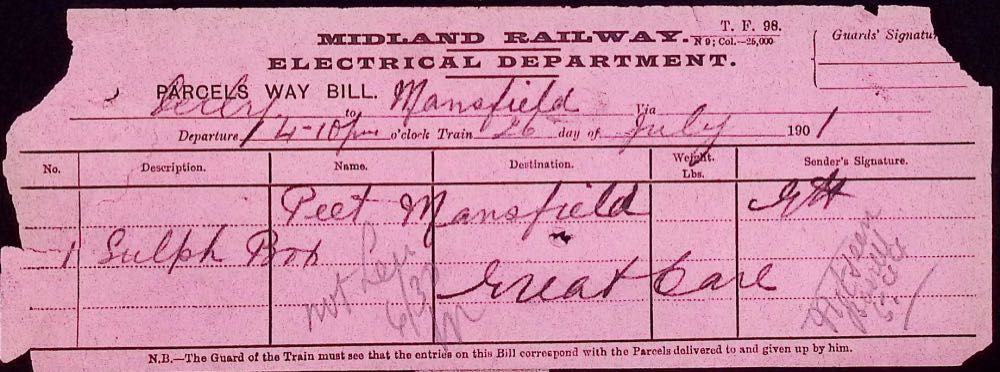 MIDLAND RAILWAY.
T. F. 98.
N 9; Col.—25,000
Guards' Signatu
ELECTRICAL DEPARTMENT.
PARCELS WAY BILL.
Derby to Mansfield Via
Departure 4-10 pm o'clock Train 26 day of July 1901
No. Description. Name. Destination. Weight. Lbs. Sender's Signature.
Peet Mansfield
1 Sulph Box
Great Care
not
6/30
N.B.—The Guard of the Train must see that the entries on this Bill correspond with the Parcels delivered to and given up by him.